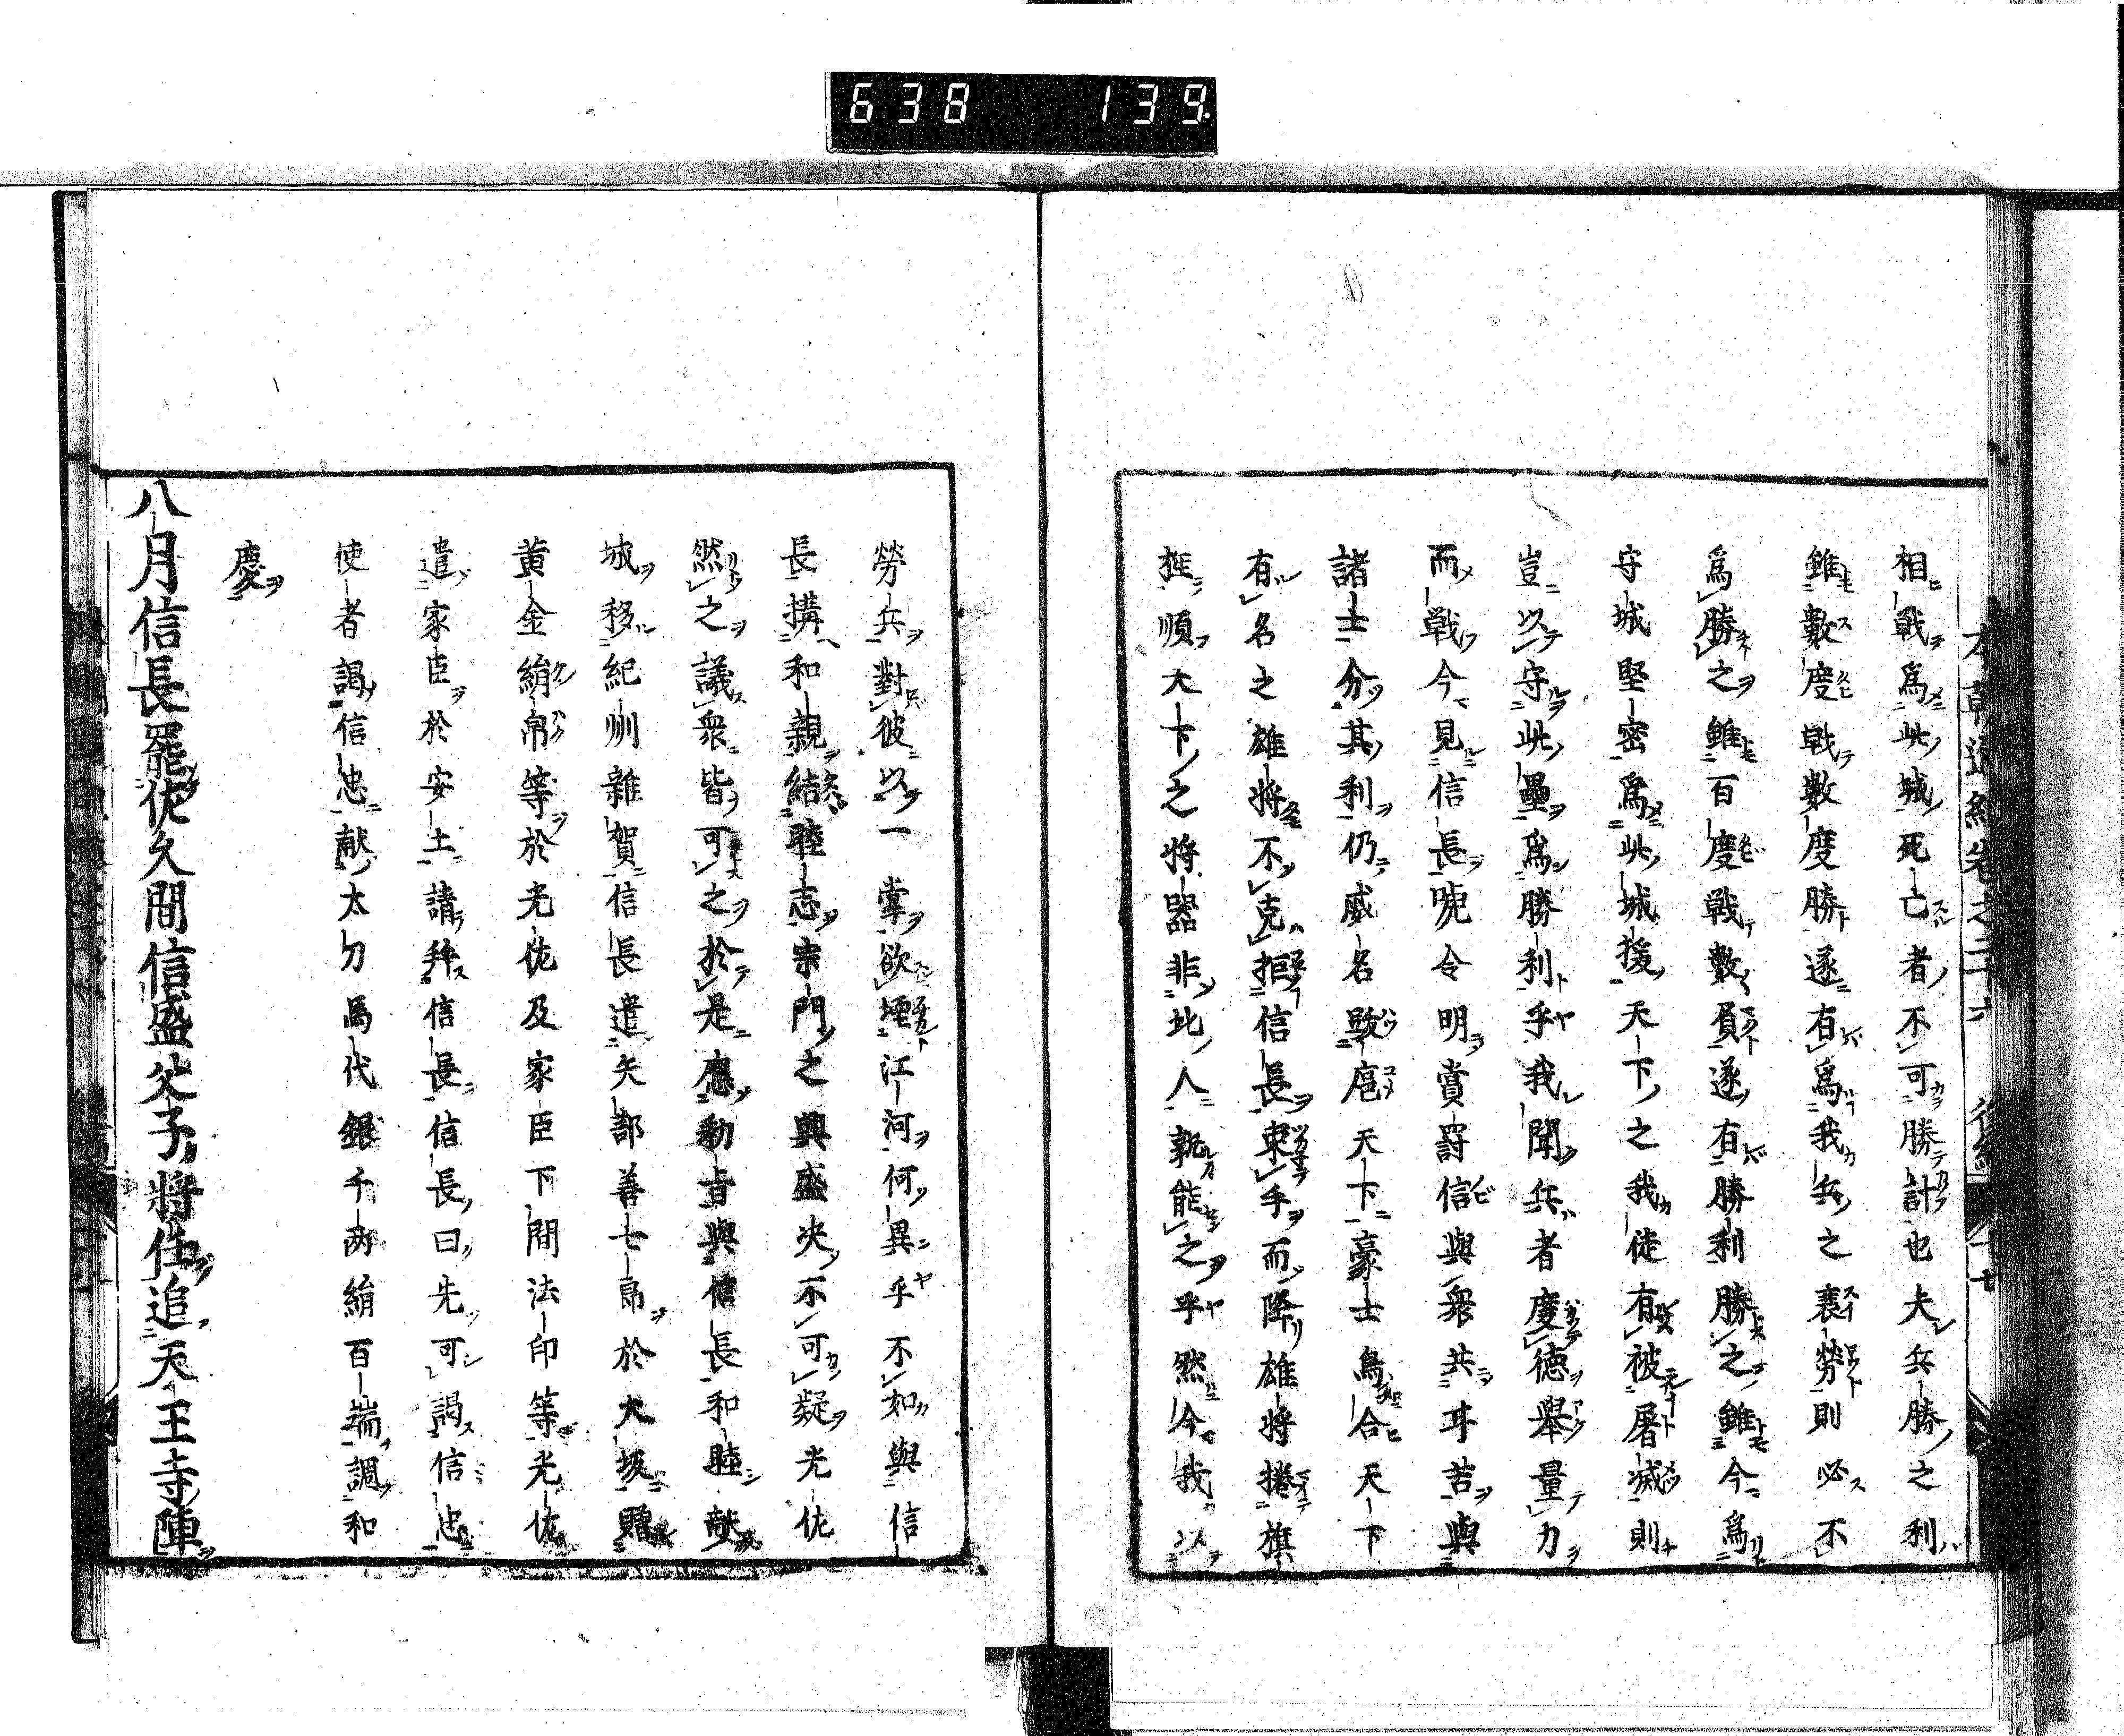 638 139
相戰爲此城死亡者不可勝計也夫兵勝之利
雖數度戰數度勝遂有爲我兵之衰勞則必不
爲勝之雖百度戰數負遂有勝利勝之雖今爲
守城堅密爲此城援天下之我徒有被屠滅則
豈以守此壘爲勝利乎我聞兵者度德舉量力
而戰今見信長號令明賞罸信與衆共耳苦與
諸士分其利仍威名蹳扈天下豪士烏合天下
有名之雄將不克拒信長束手而降雄將捲旗
抂順天下之將器非此人孰能之乎然今我以
勞兵對彼以一掌欲堙江河何異乎不如與信
長搆和親結睦志宗門之興盛决不可疑光佐
然之議衆皆可之於是應勅旨與信長和睦献
城移紀州雜賀信長遣矢部善七郎於大坂贈
黄金絹帛等於光佐及家臣下間法印等光佐
遣家臣於安土請拜信長信長曰先可謁信忠
使者謁信忠献太刀馬代銀千両絹百端調和
慶
八月信長罷佐久間信盛父子將任追天王寺陣
本朝通紀卷之二十六 後編